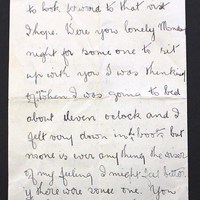 to look forward to that visit
I hope. Were you lonely Monday
night for some one to sit
up with you I was thinking
of when I was going to bed
about eleven oclock and I
felt very down in boots but
none is ever anything the
of my feeling I might
there were some one. You